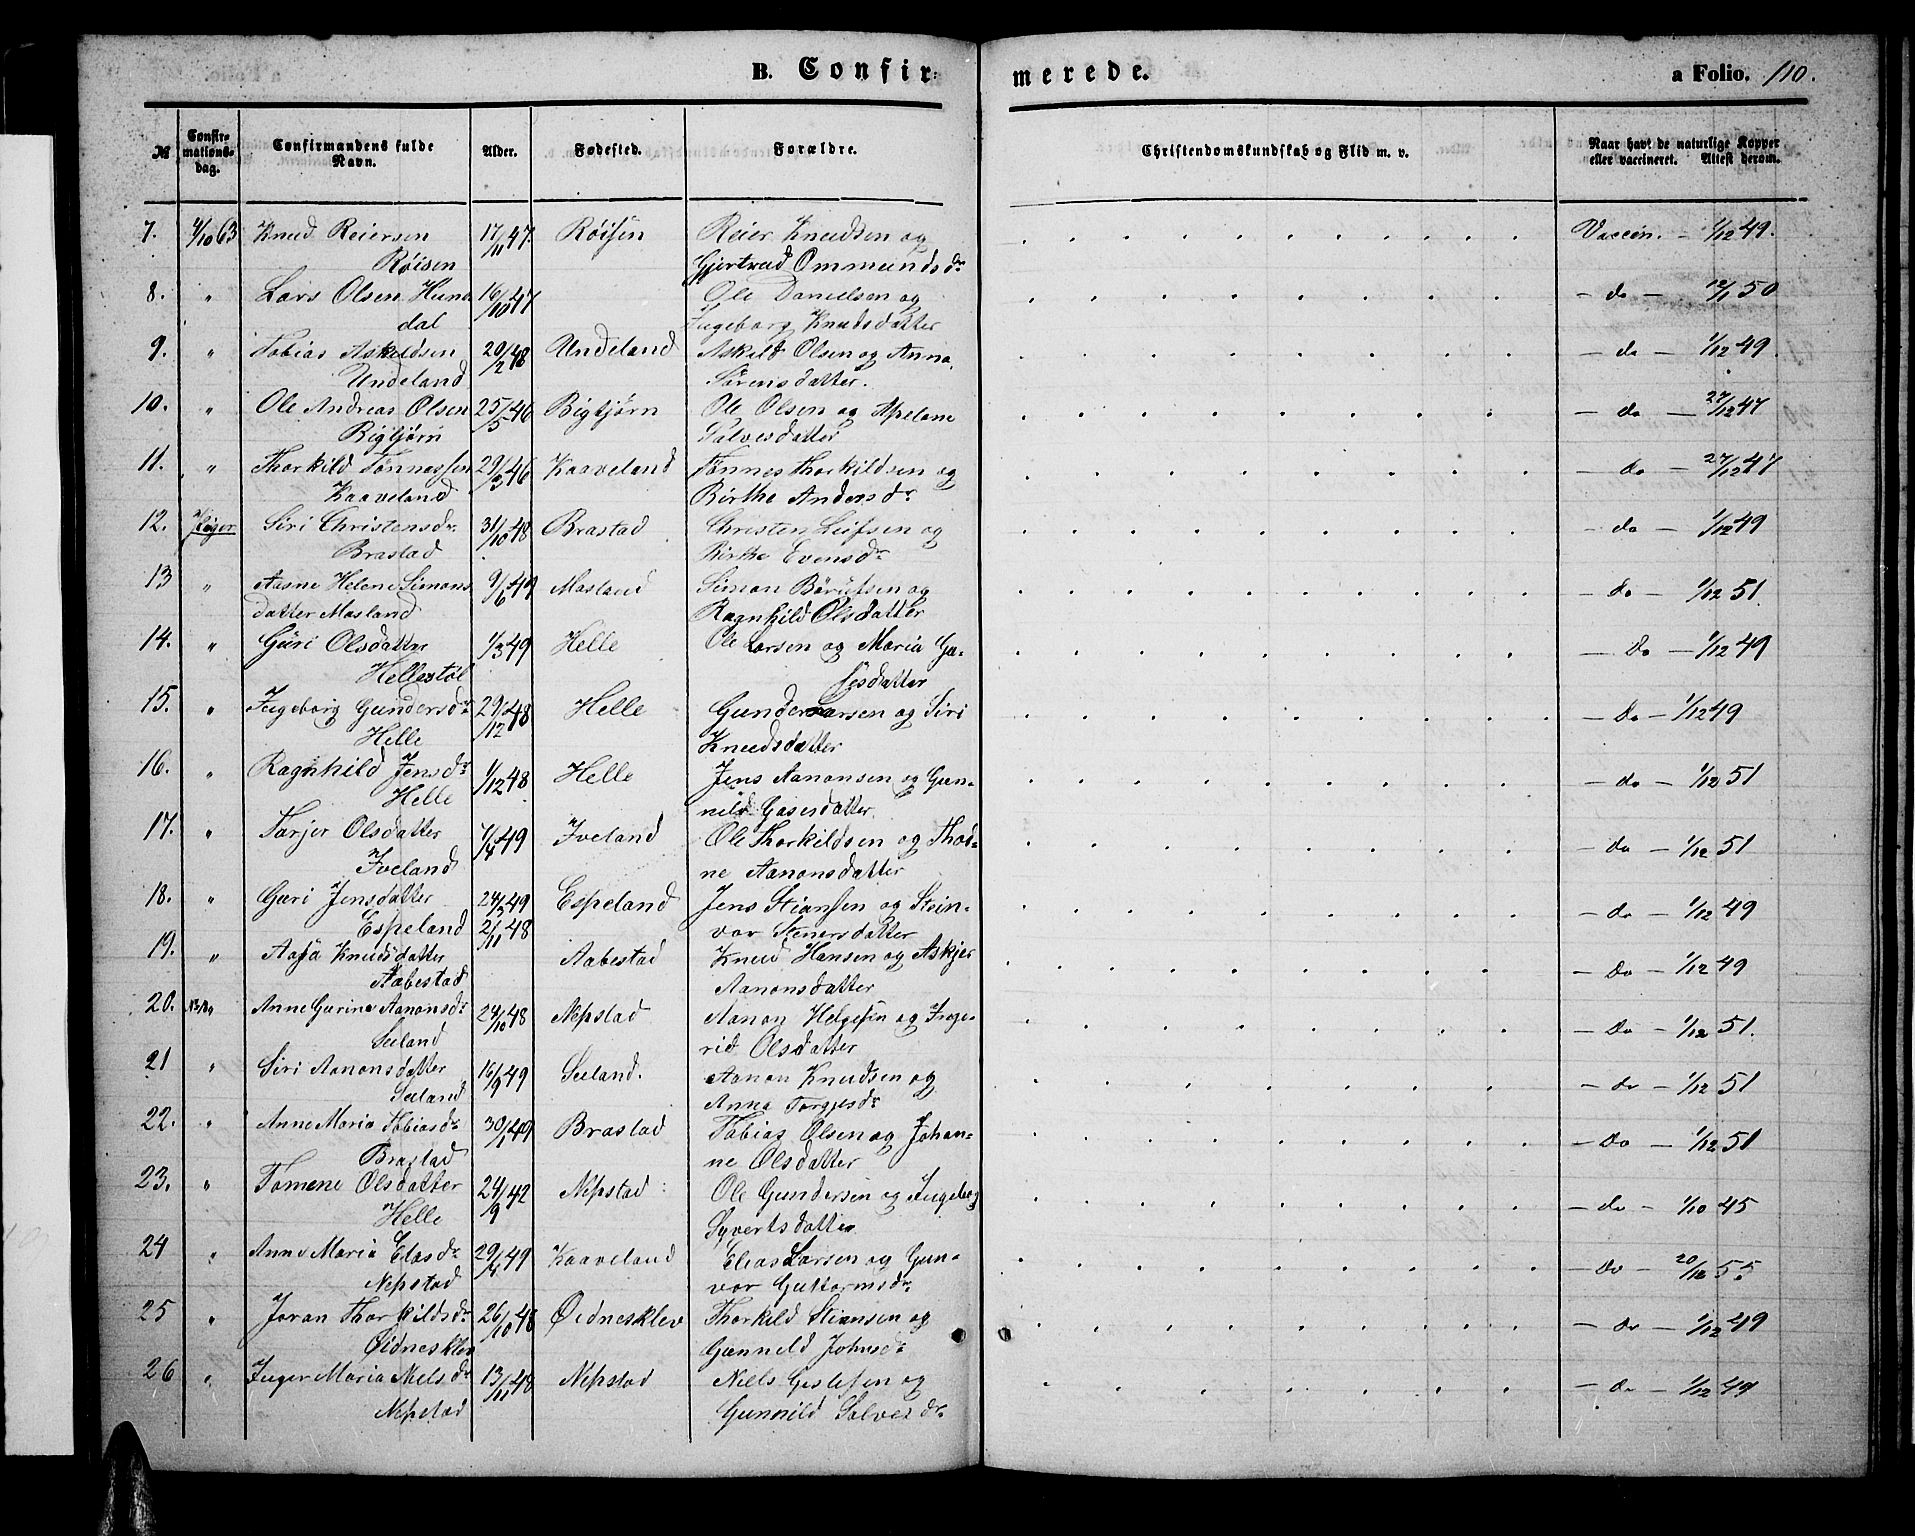 B. Confir=
merede.
a Folio. 110.
№
Confir-mations-dag.
Confirmandens fulde Navn.
Alder.
Fødested.
Forældre.
Christendomskundskab og Flid m. v.
Naar havt de naturlige Kopper eller vaccineret. Attest derom.
7. 4/10 63 Knud Reiersen 17/11 47. Røisen Reier Knudsen og Vaccin. — 1/12 49.
Røisen Gjertrud Ommundsdr
8. " Lars Olsen Hun 16/10 47 Ole Danielsen og — do — 12/1 50
dal Ingeborg Knudsdatter
9. " Tobias Askildsen 20/2 48 Undeland Askild Olsen og Anna — do — 1/12 49.
Undeland Sørensdatter.
10. " Ole Andreas Olsen 25/5 46 Bigtjørn Ole Olsen og Apelone — do — 27/12 47
Bigtjørn Salvesdatter
11. " Thorkild Tønnessen 29/3 46 Kaaveland Tønnes Thorkildsen og — do — 27/12 47
Kaaveland Birthe Andersdr
12. Piger Siri Christensdr. 31/10 48 Brastad Christen Leifsen og — do — 1/12 49
Brastad Birthe Evensdr
13 " Aasne Helene Simons 9/6 49 Masland Simon Børufsen og — do — 1/12 51.
datter Masland Ragnhild Olsdatter
14. " Guri Olsdatter 1/3 49 Helle Ole Larsen og Maria Ga- — Do — 1/12 49
Hellestøl sesdatter
15. " Ingeborg Gundersdr 29/12 48 Helle Gunder Larsen og Siri — Do — 1/12 49
Helle Knudsdatter
16. " Ragnhild Jensdr 1/12 48 Helle Jens Aanonsen og Gun- — do — 1/12 51
Helle nild Gasesdatter.
17. " Tarjer Olsdatter 7/4 49 Iveland Ole Thorkildsen og Thor- — do — 1/12 51
Iveland ne Aanonsdatter
18. " Guri Jensdatter 24/3 49 Espeland Jens Stiansen og Stein- — do — 1/12 49
Espeland 2/11 48 vor Stenersdatter
19. " Aasa Knudsdatter Aabestad Knud Hansen og Askjer — Do — 1/12 49
Aabestad Aanonsdatter
20. Anne Gurine Aanonsdr 24/10 48 Nepstad Aanon Helgesen og Inge- — Do — 1/12 51.
Seeland rid Olsdatter
21 " Siri Aanonsdatter 16/9 49 Seeland. Aanon Knudsen og — Do — 1/12 51
Seeland Anna Torgjesdr
22. " Anne Maria Tobiasdr 30/1 49 Brastad Tobias Olsen og Johan- — Do — 1/12 51
Brastad ne Olsdatter
23. " Tomene Olsdatter 24/9 42 Nepstad Ole Gundersen og Ingeborg — do — 1/10 45
Helle Syvertsdatter
24 " Anne Maria Eliasdr 29/4 49 Kaaveland Elias Larsen og Gun- — Do — 20/12 55
Nepstad vor Guttormsdr
25 " Joran Thorkildsdr 26/10 48 Øidnesklev Thorkild Stiansen og — Do — 1/12 49
Øidnesklev Gunneld Johnsdr
26 " Inger Maria Nielsdr 13/11 48 Nepstad Niels Gislesen og — Do — 1/12 49
Nepstad Gunnild Salvesdr